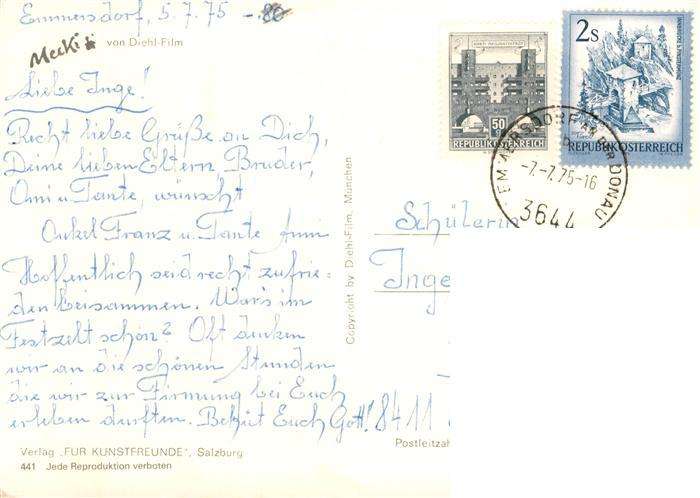 Emmersdorf, 5.7.75 -.80
Mecki von Diehl-Film
Liebe Inge!
Recht liebe Grüße an Dich,
Deine lieben Eltern, Bruder,
Omi u. Tante, wünscht
Onkel Franz u. Tante
Hoffentlich seid recht zufrie-
den beisammen. War's im
Festzelt schön? Oft denken
wir an die schönen Stunden
die wir zur Firmung bei Euch
erleben durften. Behüt Euch Gott!
Verlag „FUR KUNSTFREUNDE", Salzburg
441 Jede Reproduktion verboten
Copyright by Diehl-Film, München
50
REPUBLIK ÖSTERREICH
2S
REPUBLIK ÖSTERREICH
EMMERSDORF AN DER DONAU
-7.-7.75-16
3644
Schülerin
Inge
8411
Postleitzah